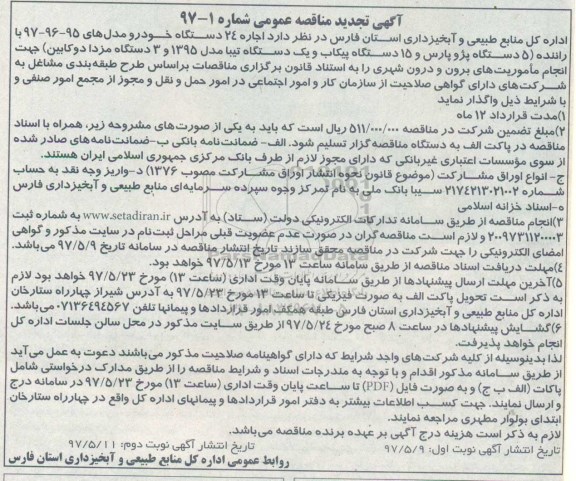 آگهی تجدید مناقصه عمومی شماره ۱-۹۷
اداره کل منابع طبیعی و آبخیزداری استان فارس در نظر دارد اجاره ۲۴ دستگاه خودرو مدل‌های ۹۵-۹۶-۹۷ با
راننده (۵ دستگاه پژو پارس و ۱۵ دستگاه پیکاپ و یک دستگاه تیبا مدل ۱۳۹۵ و ۳ دستگاه مزدا دوکابین) جهت
انجام مأموریت‌های برون و درون شهری را به استناد قانون برگزاری مناقصات براساس طرح طبقه‌بندی مشاغل به
شرکت‌های دارای گواهی صلاحیت از سازمان کار و امور اجتماعی در امور حمل و نقل و مجوز از مجمع امور صنفی و
با شرایط ذیل واگذار نماید
۱)مدت قرارداد ۱۲ ماه
۲)مبلغ تضمین شرکت در مناقصه ۵۱۱/۰۰۰/۰۰۰ ریال است که باید به یکی از صورت‌های مشروحه زیر، همراه با اسناد
مناقصه در پاکت الف به دستگاه مناقصه‌گزار تسلیم شود. الف- ضمانت‌نامه بانکی ب-ضمانت‌نامه‌های صادر شده
از سوی مؤسسات اعتباری غیربانکی که دارای مجوز لازم از طرف بانک مرکزی جمهوری اسلامی ایران هستند.
ج- انواع اوراق مشارکت (موضوع قانون نحوه انتشار اوراق مشارکت مصوب ۱۳۷۶) د-واریز وجه نقد به حساب
شماره ۲۱۷۴۲۱۳۰۲۱۰۰۲ سیبا بانک ملی به نام تمرکز وجوه سپرده سرمایه‌ای منابع طبیعی و آبخیزداری فارس
ه-اسناد خزانه اسلامی
۳)انجام مناقصه از طریق سامانه تدارکات الکترونیکی دولت (ستاد) به آدرس www.setadiran.ir به شماره ثبت
۲۰۰۹۷۳۱۱۲۰۰۰۳ و لازم است مناقصه گران در صورت عدم عضویت قبلی مراحل ثبت نام در سایت مذکور و گواهی
امضای الکترونیکی را جهت شرکت در مناقصه محقق سازند تاریخ انتشار مناقصه در سامانه تاریخ ۹۷/۵/۹ می‌باشد.
۴)مهلت دریافت اسناد مناقصه از طریق سامانه ساعت ۱۳ مورخ ۹۷/۵/۱۳ خواهد بود.
۵)آخرین مهلت ارسال پیشنهادها از طریق سامانه پایان وقت اداری (ساعت ۱۳) مورخ ۹۷/۵/۲۳ خواهد بود لازم
به ذکر است تحویل پاکت الف به صورت فیزیکی تا ساعت ۱۳ مورخ ۹۷/۵/۲۳ به آدرس شیراز چهارراه ستارخان
اداره کل منابع طبیعی و آبخیزداری استان فارس طبقه همکف امور قراردادها و پیمانها تلفن ۰۷۱۳۶۴۹۴۵۶۷ می‌باشد.
۶)گشایش پیشنهادها در ساعت ۸ صبح مورخ ۹۷/۵/۲۴ از طریق سایت مذکور در محل سالن جلسات اداره کل
انجام خواهد پذیرفت.
لذا بدینوسیله از کلیه شرکت‌های واجد شرایط که دارای گواهینامه صلاحیت مذکور می‌باشند دعوت به عمل می‌آید
از طریق سامانه مذکور اقدام و با توجه به مندرجات اسناد و شرایط مناقصه را از طریق مدارک درخواستی شامل
پاکات (الف ب ج) و به صورت فایل (PDF) تا ساعت پایان وقت اداری (ساعت ۱۳) مورخ ۹۷/۵/۲۳ در سامانه درج
و ارسال نمایند. جهت کسب اطلاعات بیشتر به دفتر امور قراردادها و پیمانهای اداره کل واقع در چهارراه ستارخان
ابتدای بولوار مطهری مراجعه نمایند.
لازم به ذکر است هزینه درج آگهی بر عهده برنده مناقصه می‌باشد.
تاریخ انتشار آگهی نوبت اول: ۹۷/۵/۹ تاریخ انتشار آگهی نوبت دوم: ۹۷/۵/۱۱
روابط عمومی اداره کل منابع طبیعی و آبخیزداری استان فارس